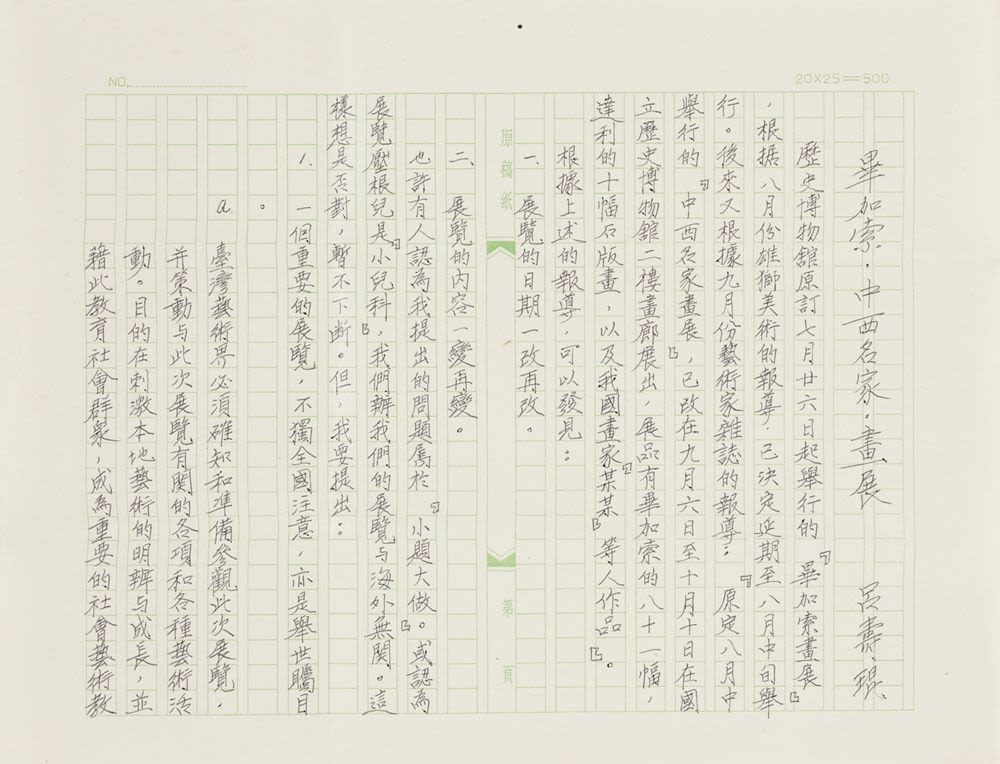 NO.
20×25=500
畢加索·中西名家·畫展 呂壽琨
歷史博物館原訂七月廿六日起舉行的『畢加索畫展』
，根据八月份雄獅美術的報導：已決定延期至八月中旬舉
行。後來又根據九月份藝術家雜誌的報導：『原定八月中
舉行的『中西名家畫展』，已改在九月六日至十月十日在國
立歷史博物館二樓畫廊展出，展品有畢加索的八十一幅，
達利的十幅石版畫，以及我國畫家『某某』等人作品』。
根據上述的報導，可以發見：
一、展覽的日期一改再改。
原稿紙 第 頁
二、展覽的內容一變再變。
也許有人認為我提出的問題屬於『小題大做』。或認為
展覽壓根兒是『小兒科』，我們辦我們的展覽与海外無関。這
樣想是否對，暫不下斷。但，我要提出：
1. 一個重要的展覽，不獨全國注意，亦是舉世矚目
。
a. 臺灣藝術界必須確知和準備參觀此次展覽，
并策動与此次展覽有関的各項和各種藝術活
動。目的在刺激本地藝術的明辨与成長，並
藉此教育社會群眾，成為重要的社會藝術教